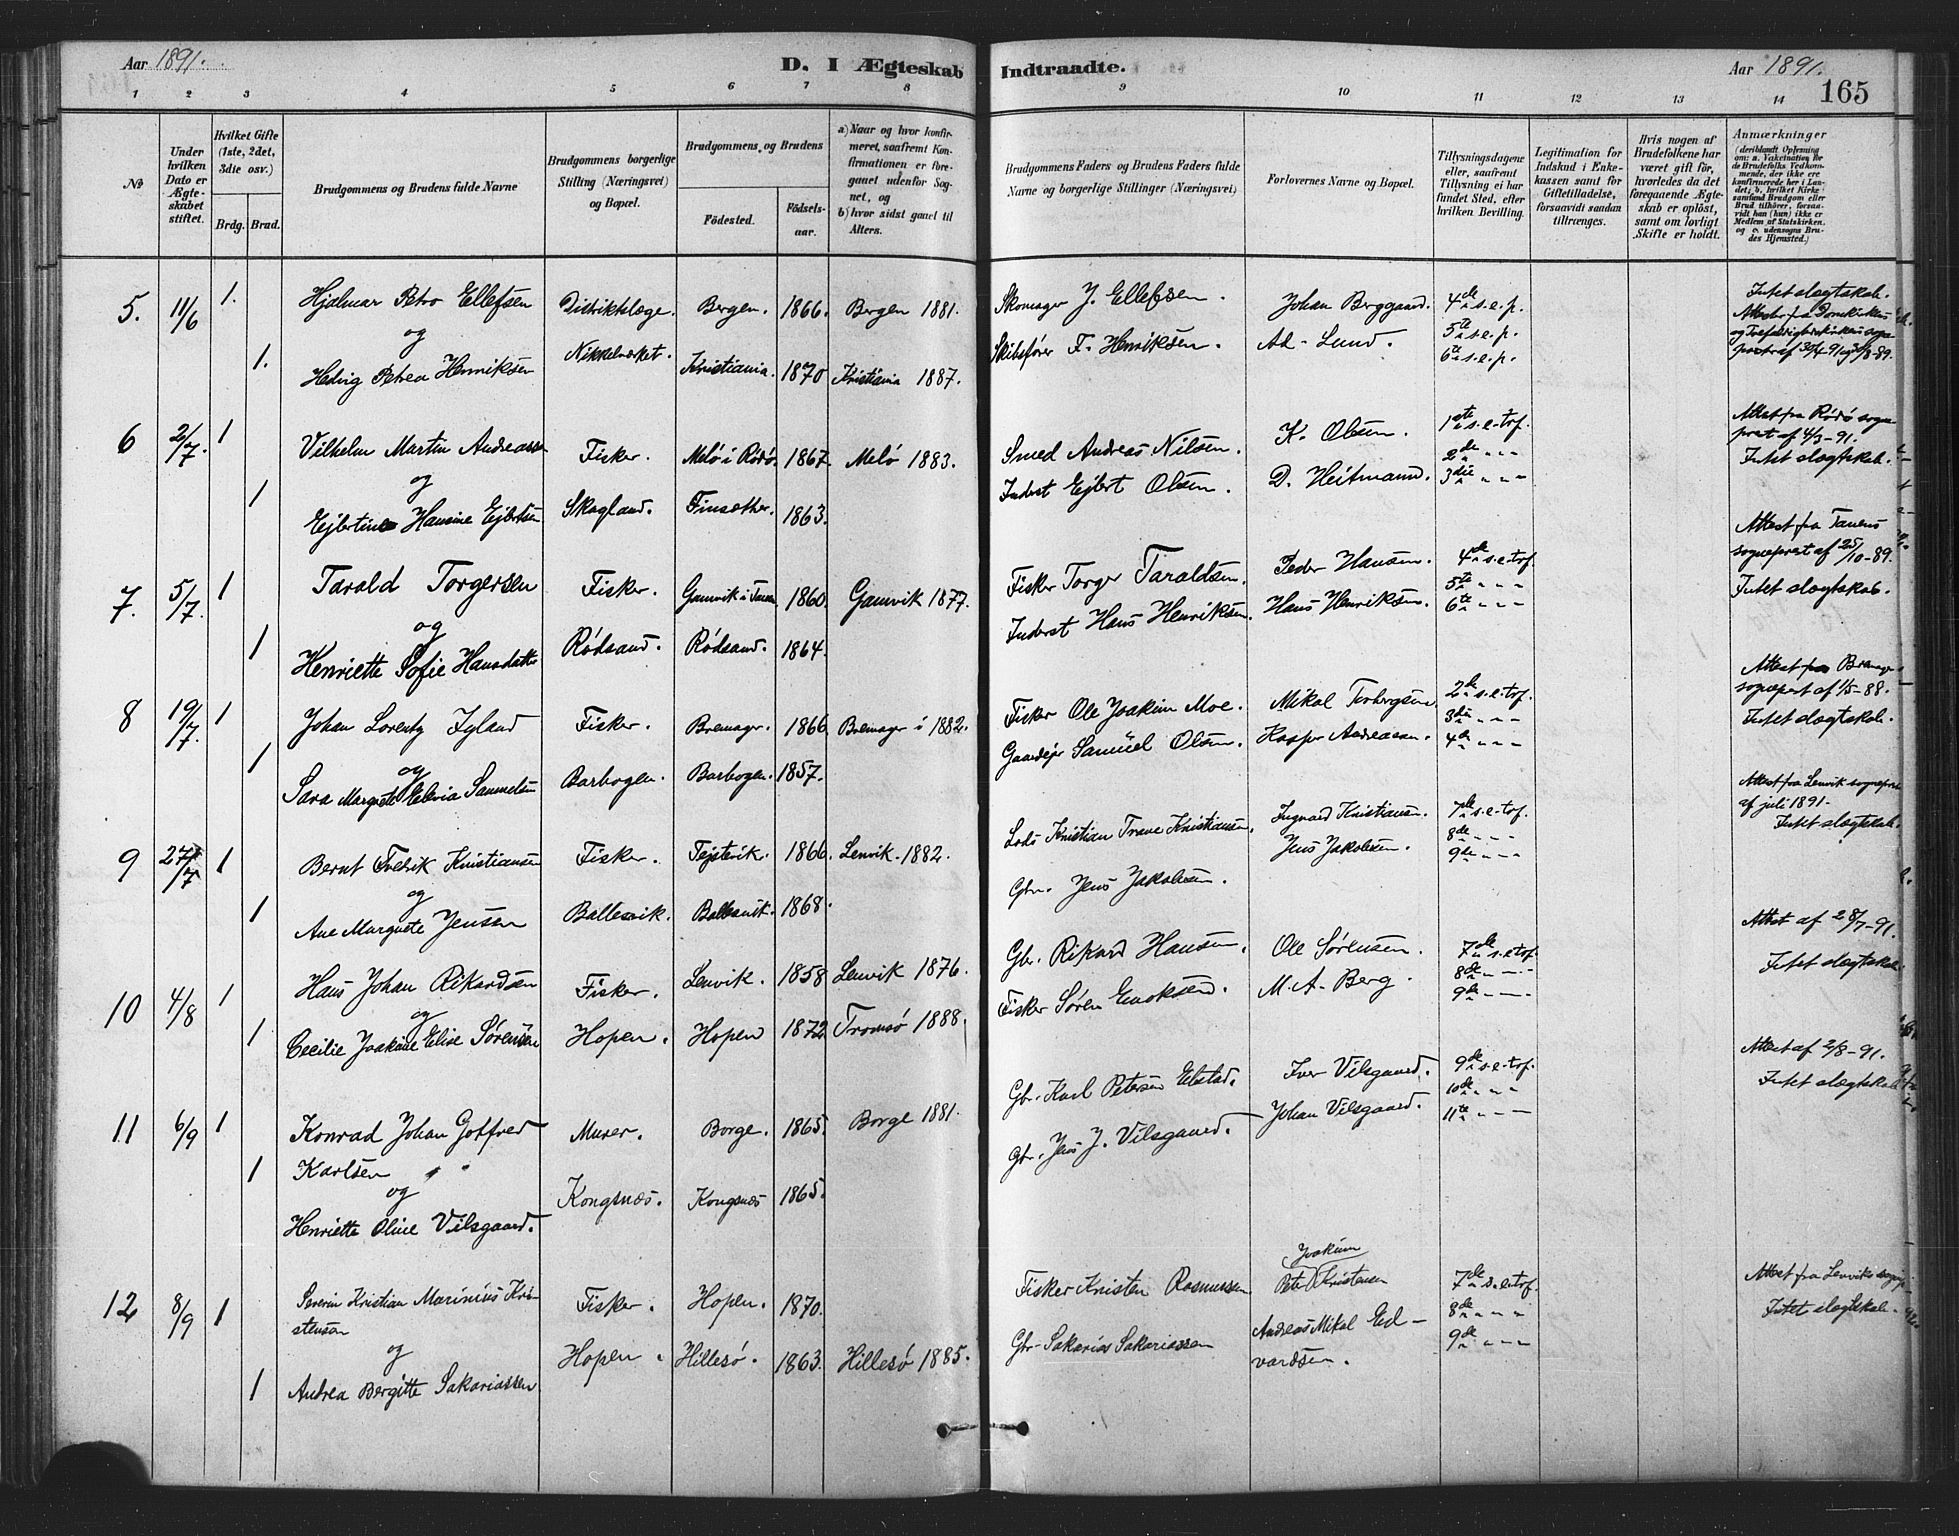 Aar 1891.
D. I Ægteskab Indtraadte.
Aar 1891.
165
1 2 3 4 5 6 7 8 9 10 11 12 13 14
No
Under hvilken Dato er Ægteskabet stiftet.
Hvilket Gifte (1ste, 2det, 3die osv.)
Brdg. Brud.
Brudgommens og Brudens fulde Navne
Brudgommens borgerlige Stilling (Næringsvei) og Bopæl.
Brudgommens og Brudens
Fødested.
Fødselsaar.
a) Naar og hvor konfirmeret, saafremt Konfirmationen er foregaaet udenfor Sognet, og
b) hvor sidst gaaet til Alters.
Brudgommens Faders og Brudens Faders fulde Navne og borgerlige Stillinger (Næringsvei)
Forlovernes Navne og Bopæl.
Tillysningsdagene eller, saafremt Tillysning ei har fundet Sted, efter hvilken Bevilling.
Legitimation for Indskud i Enkekassen samt for Giftetilladelse, forsaavidt saadan tiltrænges.
Hvis nogen af Brudefolkene har været gift før, hvorledes da det foregaaende Ægteskab er opløst, samt om lovligt Skifte er holdt.
Anmærkninger
(deriblandt Oplysning om: a. Vakcination for de Brudefolks Vedkommende, der ikke ere konfirmerede her i Landet; b. hvilket Kirkesamfund Brudgom eller Brud tilhører, forsaavidt han (hun) ikke er Medlem af Statskirken, og c. udensogns Brudes Hjemsted.)
5. 11/6 1. Hjalmar Petro Ellefsen Distriktslæge. Bergen. 1866. Bergen 1881. Skomager J. Ellefsen. Johan Berggaard. 4de s.e.p. Intet slægtskab.
og Nikkelverket. Skibsfører F. Henriksen. Ad. Lund. 5te s.e.p.
1. Hedvig Petrea Henriksen Kristiania. 1870 Kristiania 1887. 6te s.e.p.
6 2/7 1 Vilhelm Martin Andreassen Fisker. Melø i Rødø. 1867. Melø 1883. Smed Andreas Nilsen. K. Olsen. 1ste s.e.trf. Attest fra Rødø sogneprest af 4/3-91.
og Skogland. Finsæther. Inderst Ejlert Olsen. D. Heitmann. 2de " " " Intet slægtskab.
1 Ejlertine Hansine Ejlertsen 1863. 3die " " "
7. 5/7 1 Tarald Torgersen Fisker. Gamvik i Tanen 1860. Gamvik 1877. Fisker Torger Taraldsen. Peder Hansen. 4de s.e.trf. Attest fra Tanens sogneprest af 25/10-89.
og Rødsand. Rødsand. 1864. Inderst Hans Henriksen. Hans Henriksen. 5te " " " Intet slægtskab.
1 Henriette Sofie Hansdatter 6te " " "
8 19/7. 1 Johan Lorentz Fyland Fisker. Bremager. 1866. Bremager i 1882. Fisker Ole Joakim Moe. Mikal Torbergsen 2de s.e.trf. Attest fra Bremager sogneprest af 1/5-88.
og Barbogen. Barbogen. 1857. Gaardejr Samuel Olsen. Kasper Andreassen. 3die " " " Intet slægtskab.
1 Sara Margrete Samuelsen 4de " " "
9 27/7 1 Bernt Fredrik Kristiansen Fisker. Tejstevik. 1866. Lenvik. 1882. Lods Kristian Trane Kristiansen. Ingvard Kristiansen. 7de s.e.trf. Attest fra Lenvik sogneprest af juli 1891.
og Ballesvik. Ballesvik. 1868. Gbr. Jens Jakobsen. Jens Jakobsen. 8de " " " Intet slægtskab.
1 Ane Margrete Jensen 9de " " "
10 4/8 1 Hans Johan Rikardsen Fisker. Lenvik. 1858 Lenvik 1876. Gbr. Rikard Hansen. Ole Sørensen. 7de s.e.trf. Attest af 28/7-91.
og Hopen. Hopen 1872 Tromsø 1888. Fisker Søren Enoksen. M. A. Berg. 8de " " " Intet slægtskab.
1 Cecilie Joakine Elise Sørensen 9de " " "
11 6/9 1 Konrad Johan Gotfred Murer. Borge. 1865. Borge 1881. Gbr. Karl Petersen Elstad. Iver Vilsgaard. 9de s.e.trf. Attest af 2/8-91.
1 Karlsen Gbr. Jens J. Vilsgaard. Johan Vilsgaard. 10de " " " Intet slægtskab.
og Kongsnes. Kongsnæs 1865. 11te " " "
Henriette Oline Vilsgaard.
12 8/9 1 Severin Kristian Marinius Kristensen Fisker. Hopen. 1870. Fisker Kristen Rasmussen Joakim Peter Kristensen 7de s.e.trf. Attest fra Lenviks sognepr.
og Hopen. Hillesø. 1863. Hillesø 1885. Gbr. Sakarias Sakariassen Andreas Mikal Edvardsen. 8de " " " Intet slægtskab.
1 Andrea Bergitte Sakariassen 9de " " "